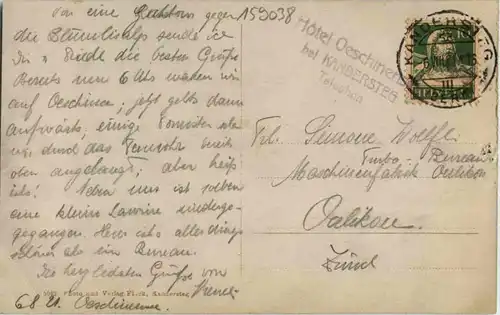 Von einer gegen 159038
die Blümlisalp sende ich
Dir die besten Grüsse
Bereits um 6 Uhr waren wir
auf Oeschinen; jetzt gehts dann
aufwärts, einige Touristen
durch das bereits
oben angelangt, aber heiß
ists! Neben uns ist soeben
eine kleine Lawine niederge-
gangen. Hier ists allerdings
schöner als ein Bureau.
Die herzlichsten Grüße von
6.8.21. Oeschinensee.
Photo und Verlag Kandersteg
Hôtel Oeschinensee
bei KANDERSTEG
Telephon
KANDERSTEG
HELVETIA
Frl. Simone Wolff
Turbo-Bureau
Maschinenfabrik Oerlikon
Oerlikon
Zürich